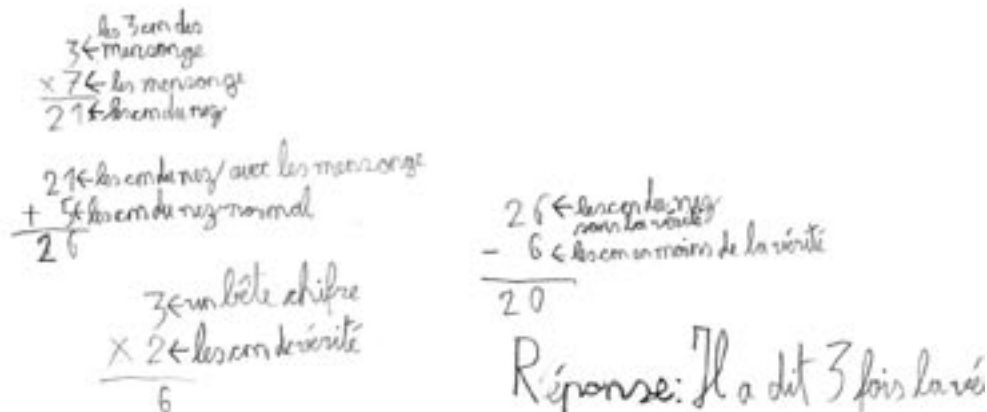 les 3 cm des
3 ← mensonge
× 7 ← les mensonge
21 ← les cm du nez
21 ← les cm du nez / avec les mensonge
+ 5 ← les cm du nez normal
26
3 ← un bête chifre
× 2 ← les cm de vérité
6
26 ← les cm du nez
sans la vérité
- 6 ← les cm en moins de la vérité
20
Réponse: Il a dit 3 fois la vé